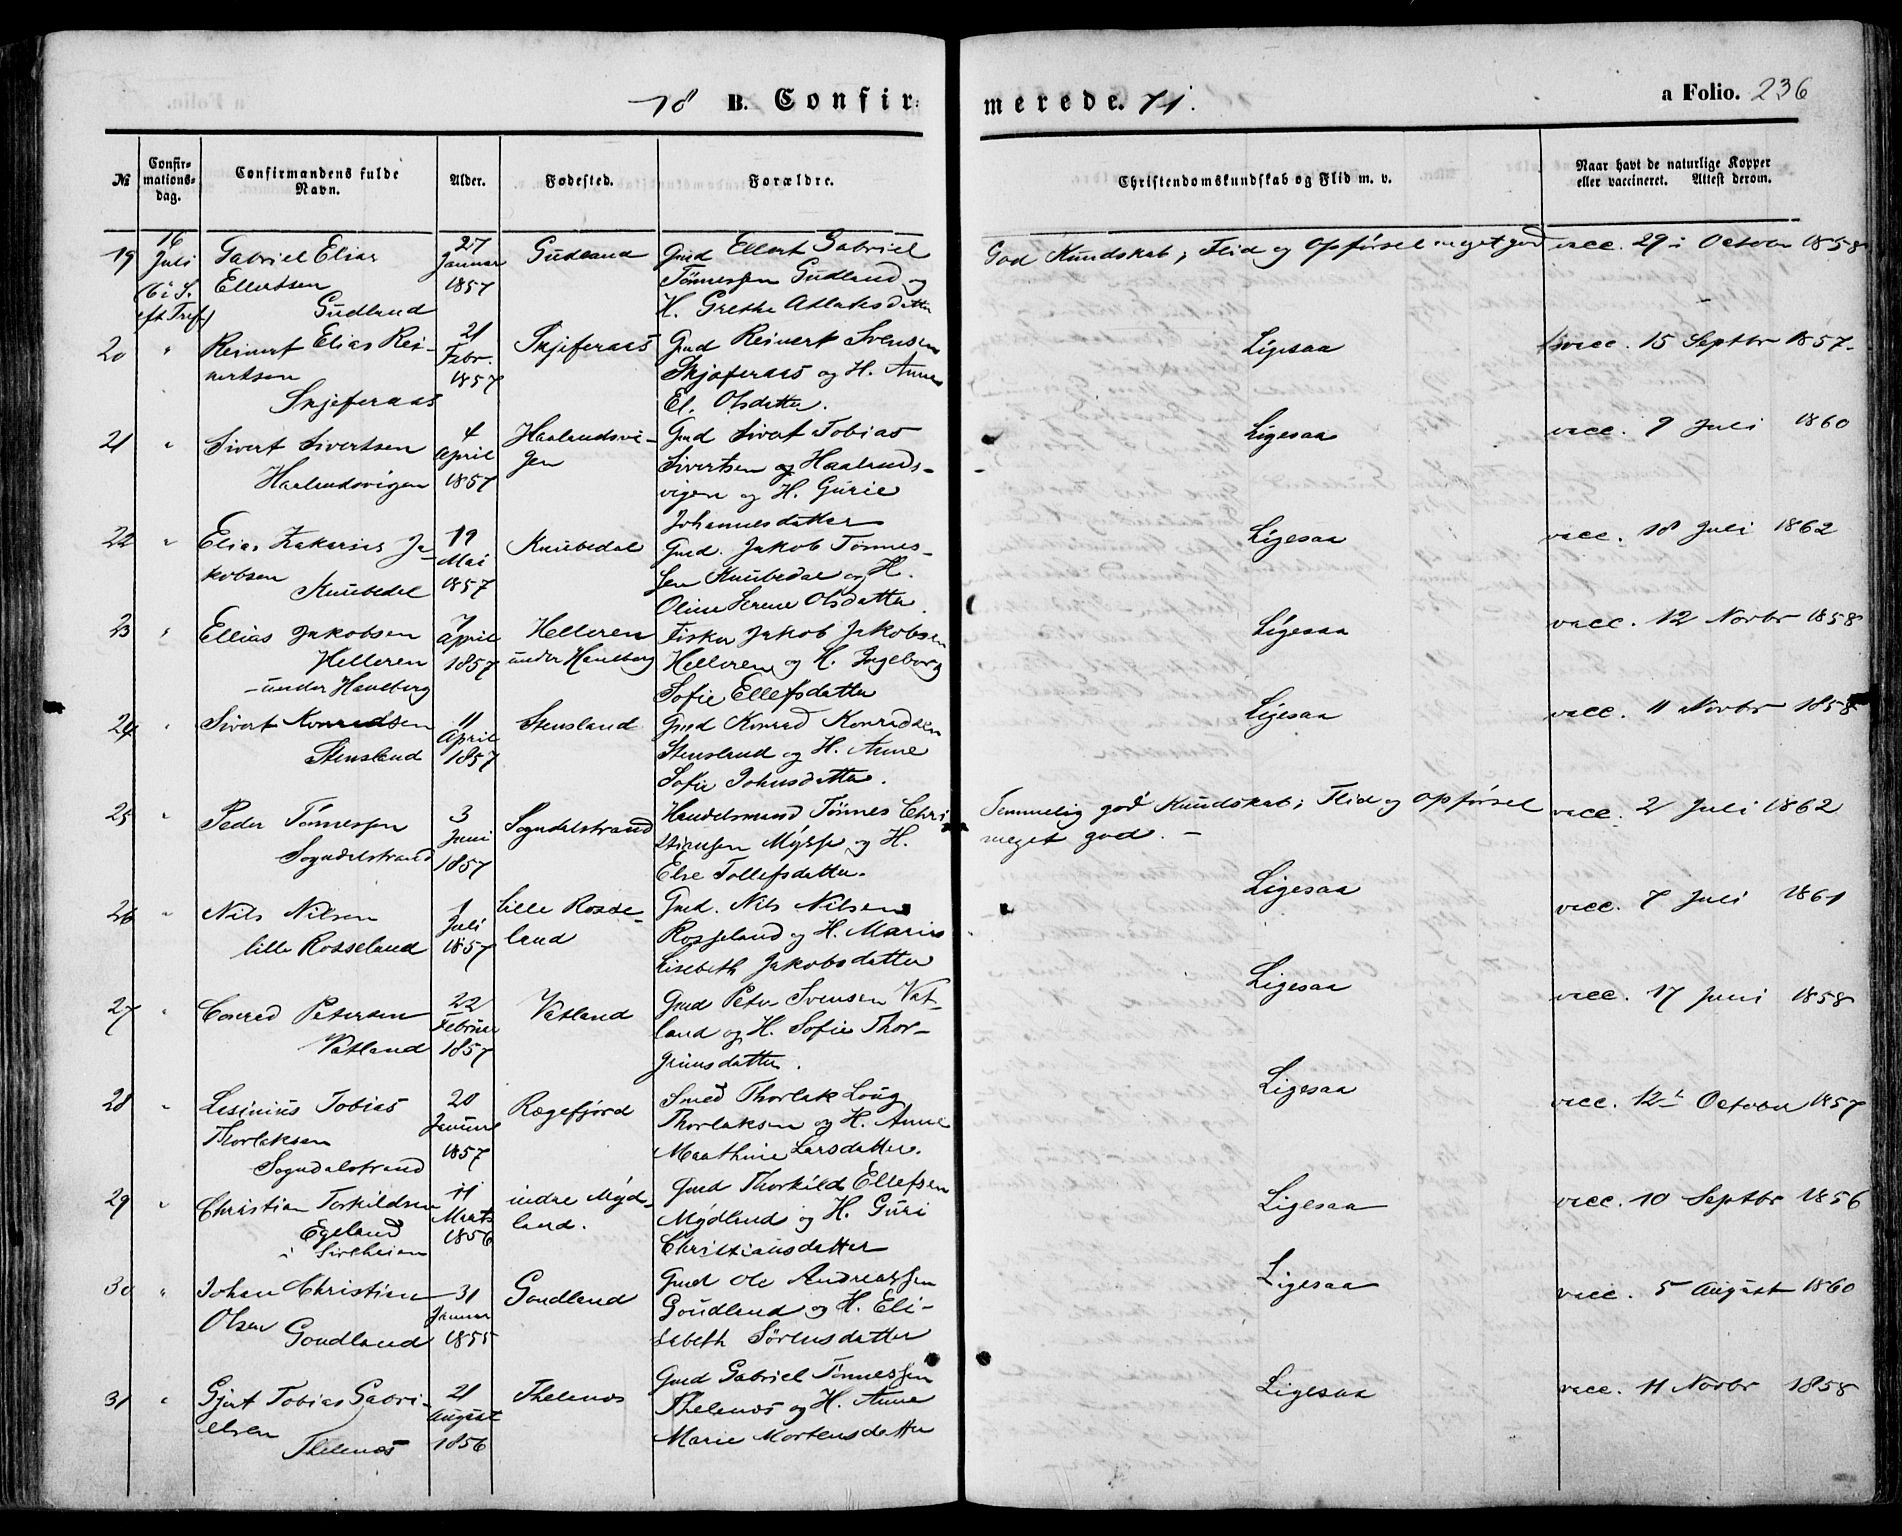 18 B. Confirmerede. 71. a Folio. 236
No Confirmationsdag. Confirmandens fulde Navn. Alder. Fødested. Forældre. Christendomskundskab og Flid m. v. Naar havt de naturlige Kopper eller vaccineret. Attest derom.
19 16 Juli (6 i S. eft Tref) Gabriel Elias Ellertsen Gudland 27 Januar 1857 Gudland Gmd Ellert Gabriel Tönnessen Gudland og H. Grethe Atlaksdatter God Kundskab, Flid og Opförsel meget god vacc. 29 i October 1858
20 " Reinert Elias Reinertsen Skjeferaas 21 Febr. 1857 Skjeferaas Gmd Reinert Svensen Skjeferaas og H. Anne El. Olsdatter. Ligesaa vacc. 15 Septbr 1857.
21 " Sivert Sivertsen Haalandsvigen 4 April 1857 Haalandsvigen Gmd Sivert Tobias Sivertsen og Haalandsvigen og H. Gurie Johannesdatter Ligesaa vacc. 9 Juli 1860
22 " Elias Zakarias Jakobsen Knubedal 19 Mai 1857 Knubedal Gmd. Jakob Tönnessen Knubedal og H. Oline Serine Olsdatter. Ligesaa vacc. 18 Juli 1862
23 " Ellias Jakobsen Helleren under Haneberg 7 April 1857 Helleren under Haneberg Fisker Jakob Jakobsen Helleren og H. Ingeborg Sofie Ellefsdatter Ligesaa vacc. 12 Novbr 1858
24 " Sivert Konradsen Stensland 11 April 1857 Stensland Gmd Konrad Konradsen Stensland og H. Anne Sofie Johnsdatter. Ligesaa vacc. 11 Novbr 1858
25 " Peder Tönnessen Sogndalstrand 3 Juni 1857 Sogndalstrand Handelsmand Tönnes Christiansen Myssp og H. Else Tollefsdatter. Temmelig god Kundskab, Flid og Opförsel meget god. — vacc. 2 Juli 1862
26 " Nils Nilsen lille Rosseland 1 Juli 1857 lille Rosseland Gmd. Nils Nilsen Rosseland og H. Marie Lisebeth Jakobsdatter Ligesaa vacc. 7 Juli 1861
27 " Conrad Petersen Vatland 22 Februar 1857 Vatland Gmd Peter Svensen Vatland og H. Sofie Thorgrimsdatter. Ligesaa vacc. 17 Juni 1858
28 " Lesinius Tobias Thorlaksen Sogndalstrand 20 Januar 1857 Rægefjord Smed Thorlak Loug Thorlaksen og H. Anne Maathine Larsdatter. Ligesaa vacc. 12 October 1857
29 " Christian Torkildsen Egeland i Sireheien 11 Marts 1856 indre Mydland. Gmd Thorkild Ellefsen Mydland og H. Guri Christiansdatter Ligesaa vacc. 10 Septbr 1856
30 " Johan Christian Olsen Goudland 31 Januar 1855 Goudland Gmd Ole Andreassen Goudland og H. Elisabeth Sörensdatter Ligesaa vacc. 5 August 1860
31 " Gjert Tobias Gabrielsen Thelenæs 21 August 1856 Thelenæs Gmd Gabriel Tönnessen Thelenæs og H. Anne Marie Mortensdatter Ligesaa vacc. 11 Novbr 1858